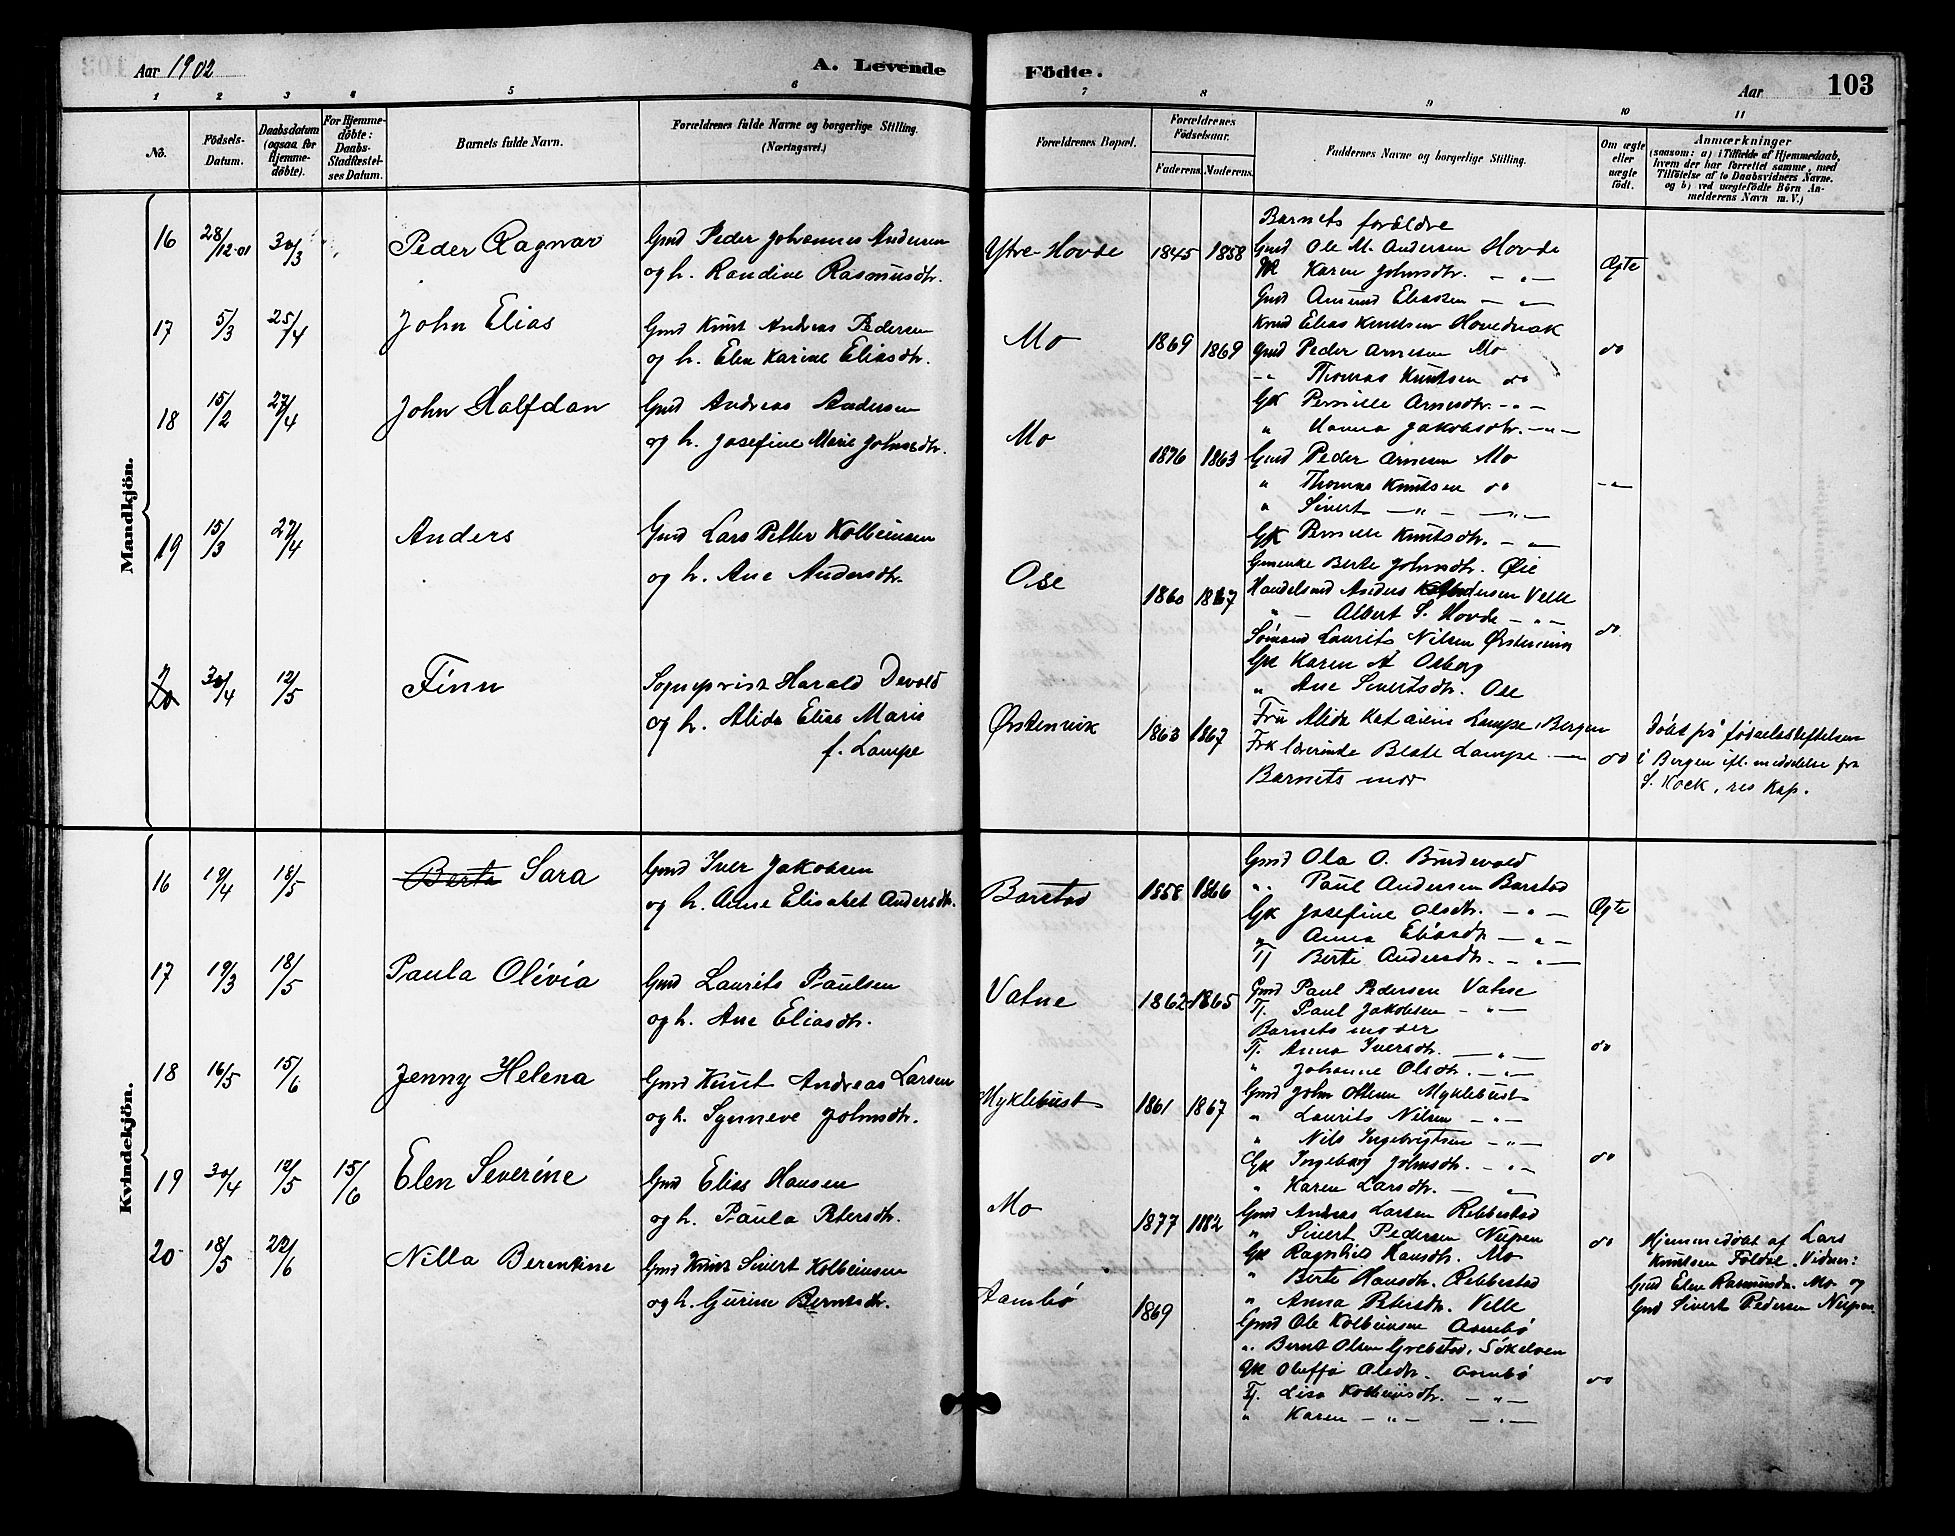 Aar 1902
A. Levende
Födte.
Aar
103
1 2 3 4 5 6 7 8 9 10 11
No.
Födsels-Datum.
Daabsdatum (ogsaa for Hjemme-döbte).
For Hjemme-döbte: Daabs-Stadfæstel-ses Datum.
Barnets fulde Navn.
Forældrenes fulde Navne og borgerlige Stilling.
(Næringsvei.)
Forældrenes Bopæl.
Forældrenes Födselsaar.
Faderens. Moderens.
Faddernes Navne og borgerlige Stilling.
Om ægte eller uægte födt.
Anmærkninger
(saasom: a) i Tilfælde af Hjemmedaab,
hvem der har forrettet samme, med
Tilföielse af to Daabsvidners Navne.
og b) ved uægtefödte Börn An-
melderens Navn m. V.)
Mandkjön.
16 28/12-01 30/3 Peder Ragnar
Gmd Peder Johannes Andersen
og h. Randine Rasmusdtr.
Ytre-Hovde 1845 1858
Barnets forældre
Gmd Ole M. Andersen Hovde
Karen Johnsdtr. — " —
Gmd Amund Eliassen — " —
Ægte
17 5/3 25/4 John Elias
Gmd Knut Andreas Pedersen
og h. Elen Karine Eliasdtr.
Mo 1869 1869
Elias Knutsen Hovednak
Gmd Peder Arnesen Mo
-" Thomas Knutsen do
Gk Pernille Arnesdtr. - " -
" Hanna Jakobsdtr. - " -
do
18 15/2 27/4 John Halfdan
Gmd Andreas Andersen
og h. Josefine Marie Johnsdtr.
Mo 1876 1863
Gmd Peder Arnesen Mo
" Thomas Knutsen do
" Sivert — " — — " —
Gk Pernille Knutsdtr. — " —
Berte Johnsdtr. Øie
- " -
19 15/3 27/4 Anders
Gmd Lars Petter Kolbeinsen
og h. Ane Andersdtr.
Ose 1860 1867
Handelsmd Anders Andersen Velle
" — Albert S. Hovde — " —
Sömand Laurits Nilsen Ørstenvik
Gk Karen A Osborg
" Ane Sivertsdtr. Ose
do
20 30/4 12/5 Finn
Sogneprist Harald Devold
og h. Alida Elise Marie
f. Lampe
Ørstenvik 1863 1867
Fru Alida Lampe, Bergen
Frk lærerinde Beate Lampe — " —
Barnets mor
do
Döbt på födselsstiftelsen
i Bergen ifl. meddelelse fra
S. Kock, res Kap.
Kvindekjön.
16 19/4 18/5 Berte Sara
Gmd Iver Jakobsen
og h. Anne Elisabet Andersdtr.
Barstad 1858 1866
Gmd Ola O. Brudevold
" Paul Andersen Barstad
Gk Josefine Olsdtr. — " —
" Anna Eliasdtr — " —
Tj Berte Andersdtr. — " —
Ægte
17 19/3 18/5 Paula Olivia
Gmd Laurits Paulsen
og h. Ane Eliasdtr.
Vatne 1862 1865
Gmd Paul Pedersen Vatne
Tj. Paul Jakobsen — " —
Barnets moder
Tj. Anna Iversdtr. — " —
" Johanne Olsdtr. — " —
do
18 16/5 15/6 Jenny Helena
Gmd Knut Andreas Larsen
og h. Synneve Johnsdtr.
Myklebust 1861 1867
Gmd John Olsen Myklebust
" Laurits Nilsen — " —
" Nils Ingebrigtsen — " —
Gk Ingeborg Johnsdtr. — " —
" Karen Larsdtr. — " —
do
19 30/4 12/5 15/6 Elen Severine
Gmd Elias Hansen
og h. Paula Petersdtr.
Mo 1877 1882
Gmd Andreas Larsen Rebbestad
" Sivert Pedersen Nupen
Gk Ragnhild Hansdtr. Mo
" Berte Hansdtr. Rebbestad
" Anna Petersdtr. Velle
do
Hjemmedöbt af Lars
Knutsen Foldal. Vidner:
Gmd Elen Rasmusdtr. Mo og
Gmd Sivert Pedersen Nupen.
20 18/5 22/6 Nilla Berentine
Gmd Knut Sivert Kolbeinsen
og h. Gurine Berntsdtr.
Aambö 1869
Gmd Ole Kolbeinsen Aambö
" Bernt Olsen Grebstad, Sökelven
Gk Oluffa Olsdtr. Aambö
Tj. Lisa Kolbeinsdtr. — " —
" Karen — " — — " —
do